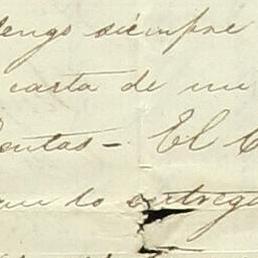 tengo siempre
carta de un
Cuentas - El C
que lo entrega